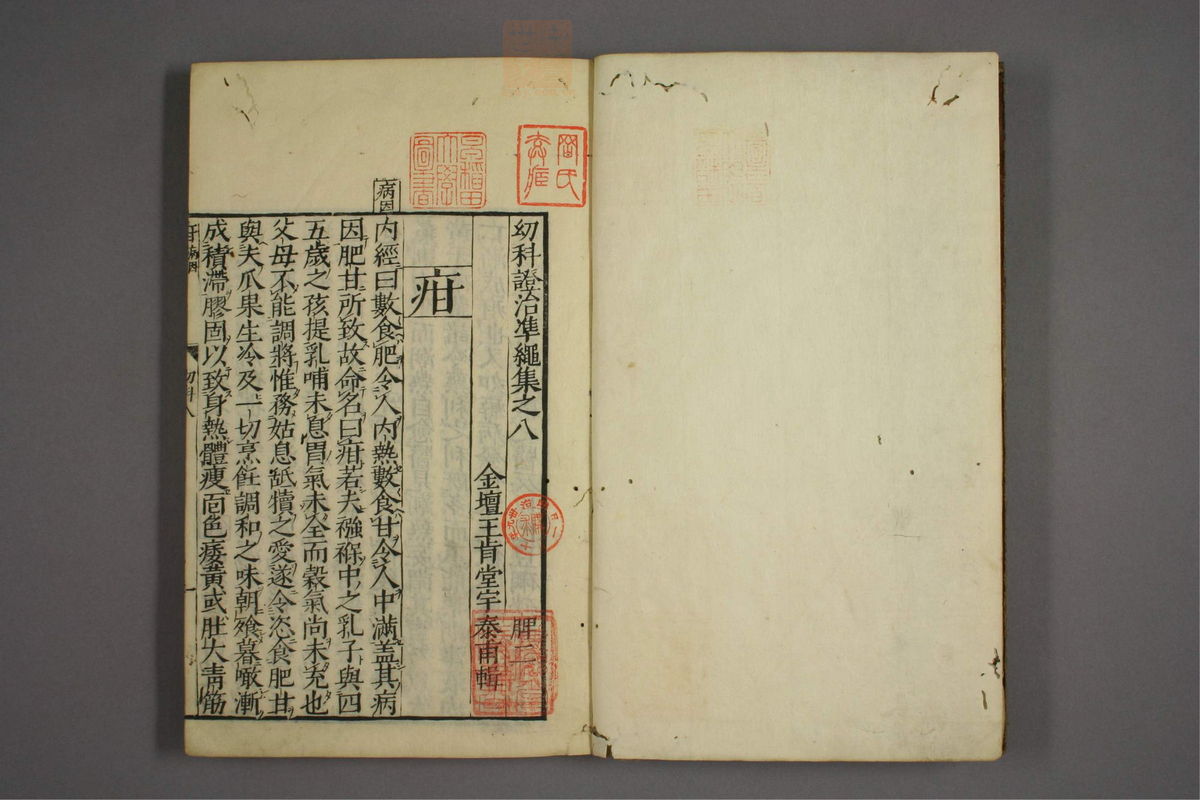 幼科證治準繩集之八
脾二
金壇王肯堂宇泰甫輯
疳
病因
内經曰數食肥令人内熱數食甘令人中滿盖其病
因肥甘所致故命名曰疳若夫襁褓中之乳子與四
五歲之孩提乳哺未息胃氣未全而穀氣尚未充也
父母不能調將惟務姑息舐犢之愛遂令恣食肥甘
與夫瓜果生冷及一切烹飪調和之味朝飧暮噉漸
成積滯膠固以致身熱體瘦面色痿黄或肚大青筋
疳病因
幼科八
一
早稲田大學圖書